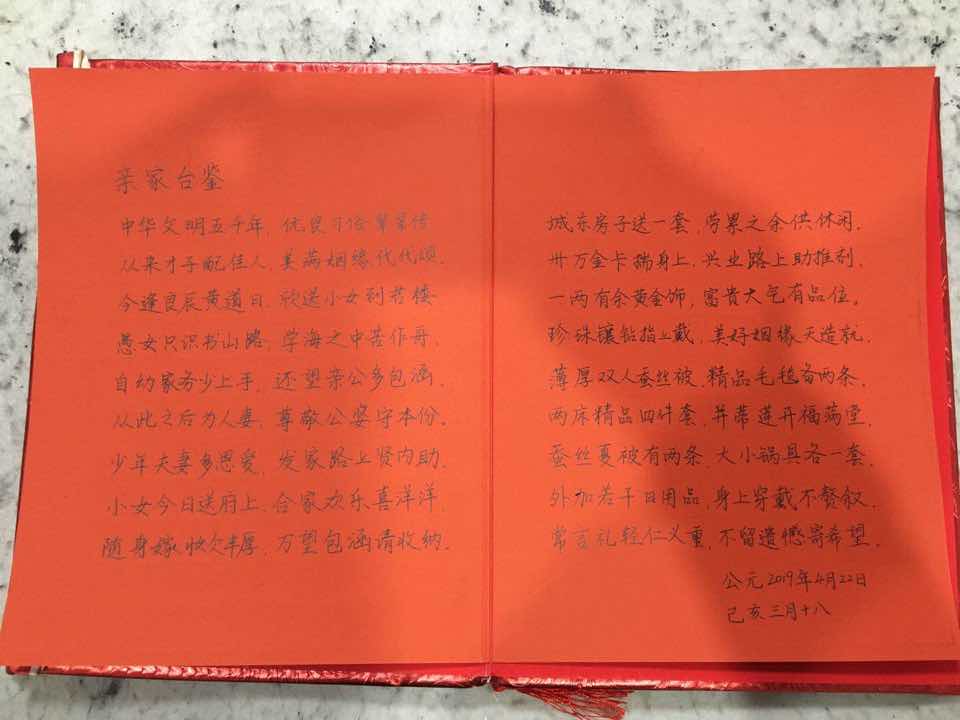 亲家台鉴
中华文明五千年，优良习俗辈辈传
从来才子配佳人，美满姻缘代代颂。
今逢良辰黄道日，欣送小女到君楼
愚女只识书山路，学海之中苦作哥。
自幼家务少上手，还望亲公多包涵。
从此之后为人妻，尊敬公婆守本份。
少年夫妻多恩爱，发家路上贤内助。
小女今日送府上，合家欢乐喜洋洋，
随身嫁妆欠丰厚，万望包涵请收纳。
城东房子送一套，劳累之余供休闲。
卅万金卡揣身上，兴业路上助推利。
一两有余黄金饰，富贵大气有品位。
珍珠镶钻指上戴，美好姻缘天造就。
薄厚双人蚕丝被，精品毛毯备两条。
两床精品四件套，并蒂莲开福满堂。
蚕丝夏被有两条，大小锅具各一套。
外加若干日用品，身上穿戴不赘叙。
常言礼轻仁义重，不留遗憾寄希望。
公元2019年4月22日
己亥三月十八